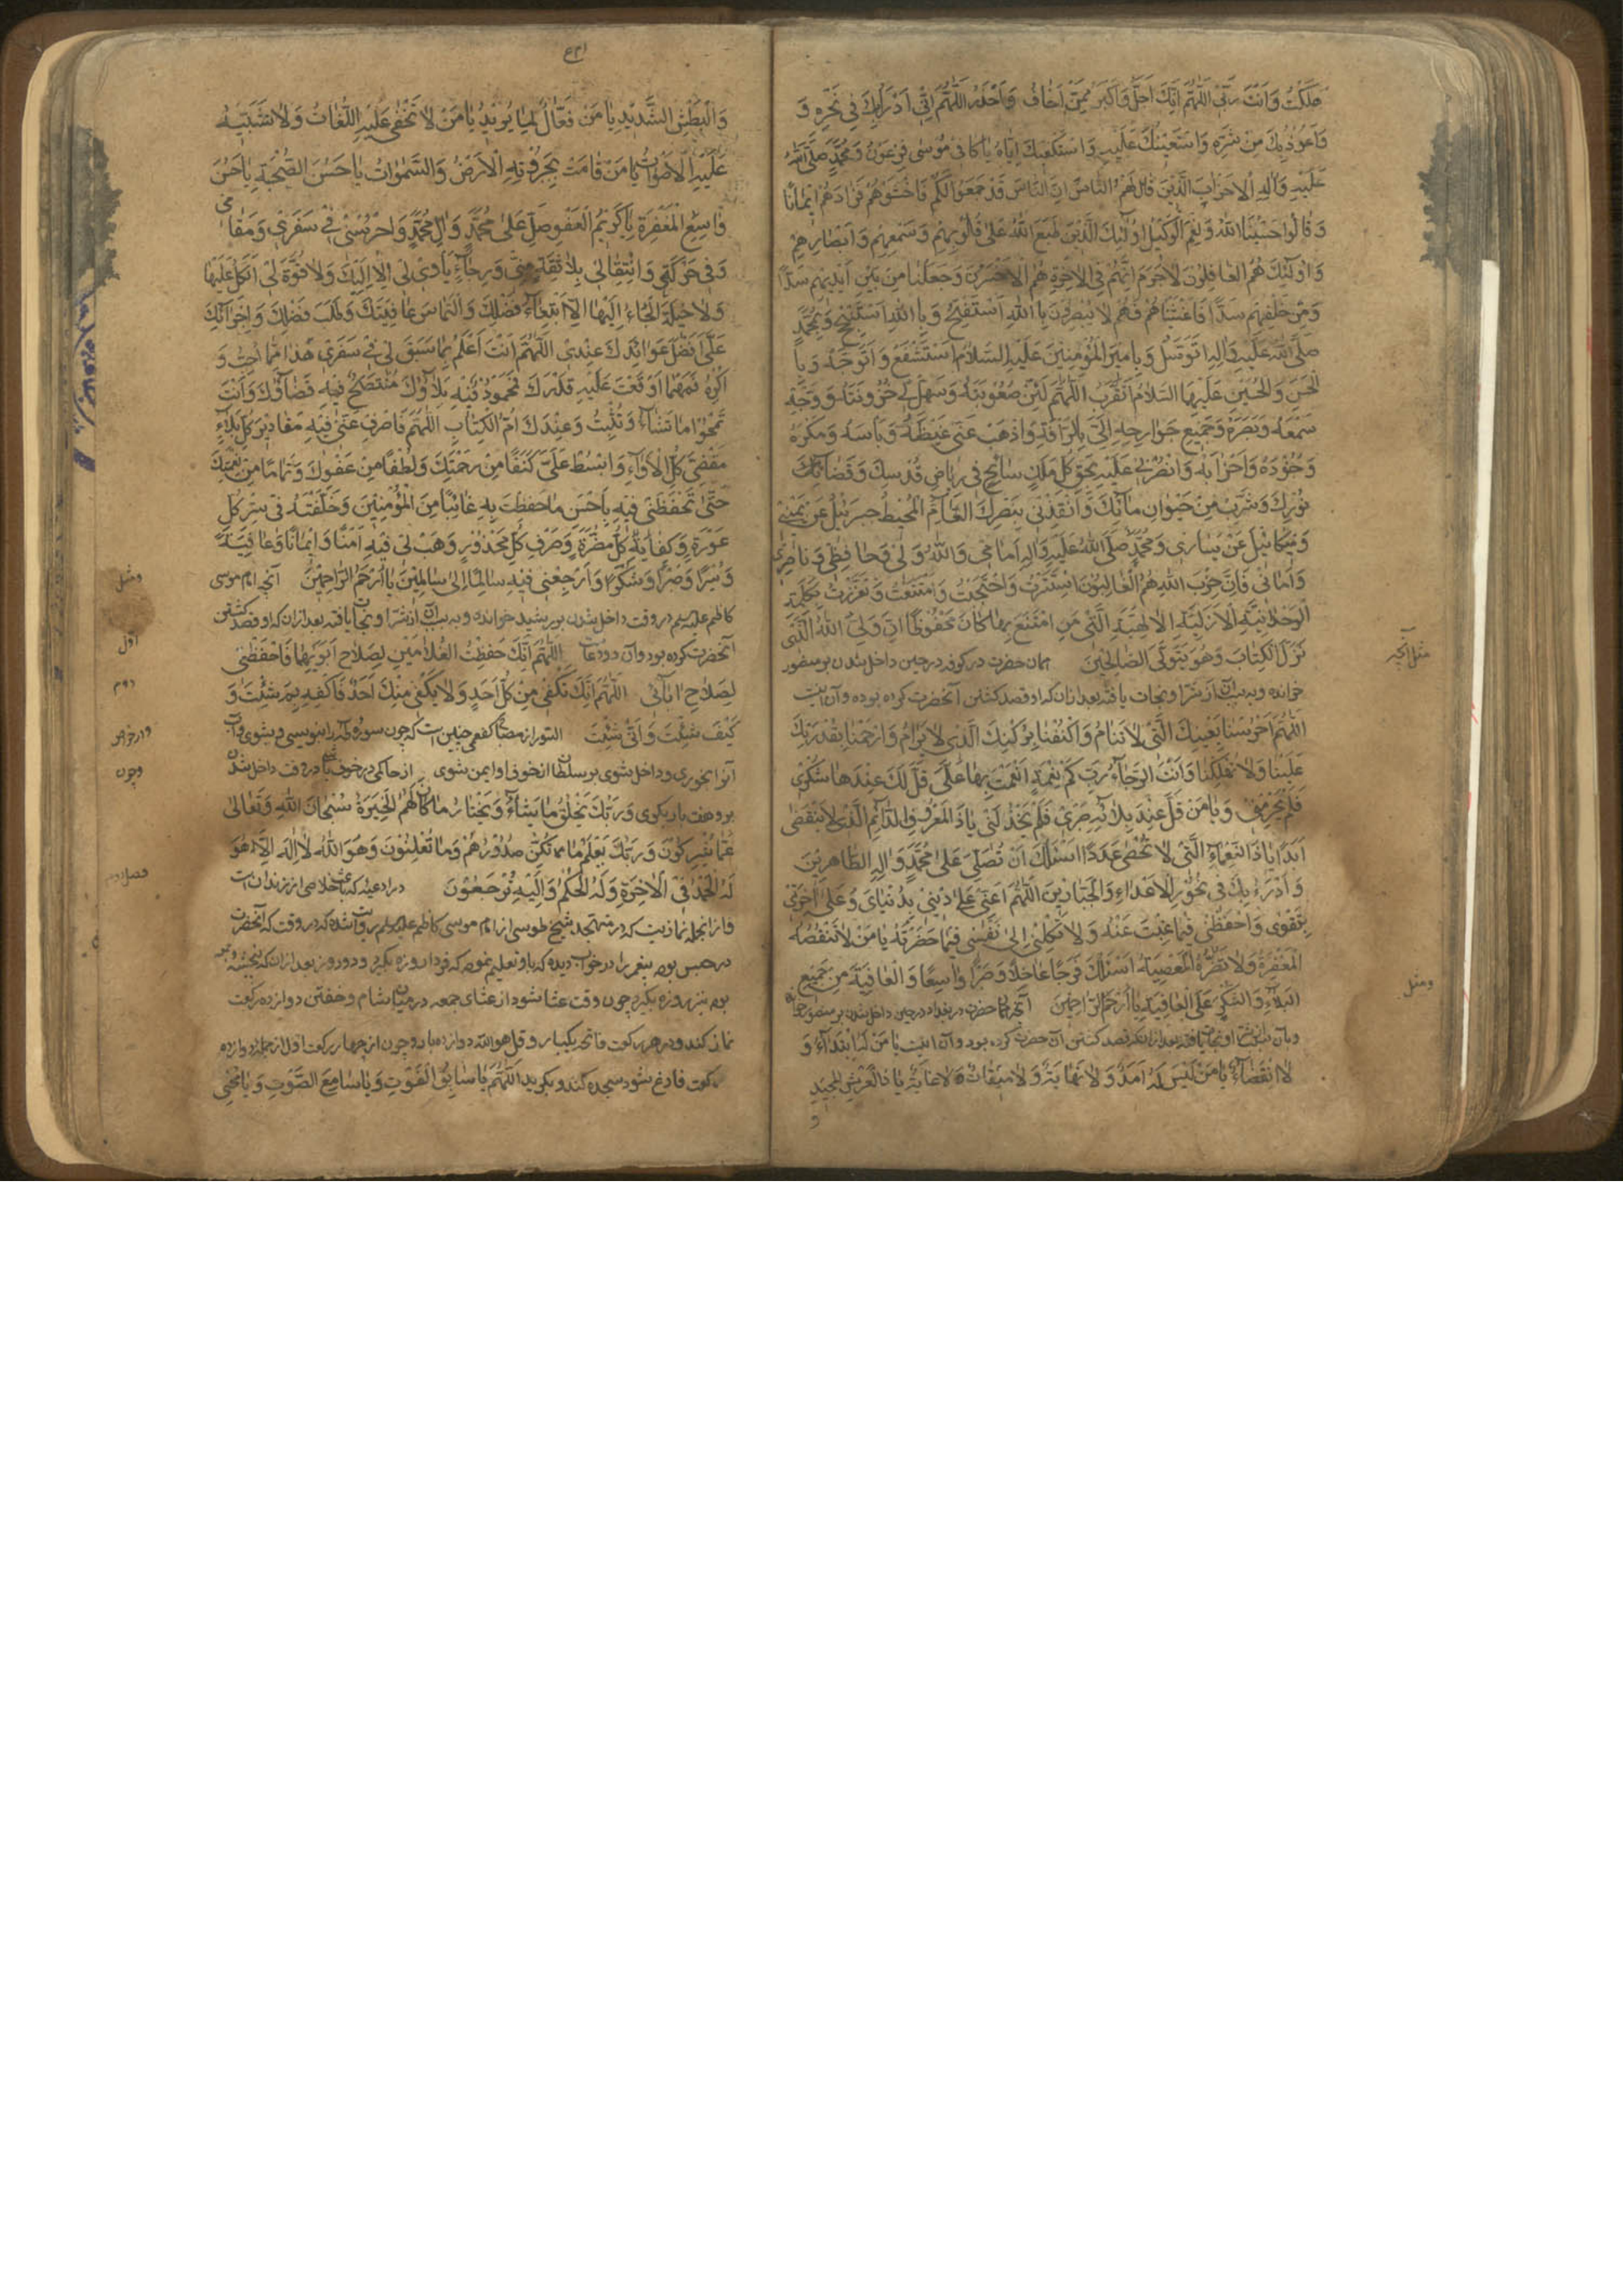 هَلَكْتُ وَاَنْتَ رَبّي اَللّهُمَّ اِنَّكَ اَجَلُّ وَاَكْبَرُ مِمَّنْ اَخافُ وَاَحْذَرُ اَللّهُمَّ اِنّي اَدْرَأُبِكَ في نَحْرِهِ وَ
وَاَعُوذُ بِكَ مِنْ شَرِّهِ وَاَسْتَعينُكَ عَلَيْهِ وَاَسْتَكْفيكَ اِيّاهُ يا كافي مُوسى فِرْعَوْنَ وَمُحَمَّدٍ صَلَّى اللهُ
عَلَيْهِ وَآلِهِ الْاَحْزابَ الَّذينَ قالَ لَهُمُ النّاسُ اِنَّ النّاسَ قَدْ جَمَعُوا لَكُمْ فَاخْشَوْهُمْ فَزادَهُمْ ايمانًا
وَقالُوا حَسْبُنَا اللهُ وَنِعْمَ الْوَكيلُ اُولئِكَ الَّذينَ طَبَعَ اللهُ عَلى قُلُوبِهِمْ وَسَمْعِهِمْ وَاَبْصارِهِمْ
وَاُولئِكَ هُمُ الْغافِلُونَ لاجَرَمَ اَنَّهُمْ فِي الْاخِرَةِ هُمُ الْاَخْسَرُونَ وَجَعَلْنا مِنْ بَيْنِ اَيْديهِمْ سَدًّا
وَمِنْ خَلْفِهِمْ سَدًّا فَاَغْشَيْناهُمْ فَهُمْ لا يُبْصِرُونَ بِاللهِ اَسْتَفْتِحُ وَبِاللهِ اَسْتَنْجِحُ وَبِمُحَمَّدٍ
صَلَّى اللهُ عَلَيْهِ وَآلِهِ اَتَوَسَّلُ وَبِاَميرِ الْمُؤْمِنينَ عَلَيْهِ السَّلامُ اَسْتَشْفَعُ وَاَتَوَجَّهُ وَبِا
لْحَسَنِ وَالْحُسَيْنِ عَلَيْهِمَا السَّلامُ اَتَقَرَّبُ اَللّهُمَّ لَيِّنْ صُعُوبَتَهُ وَسَهِّلْ لي حُزُونَتَهُ وَوَجِّهْ
سَمْعَهُ وَبَصَرَهُ وَجَميعَ جَوارِحِهِ اِلَيَّ بِالرَّأْفَةِ وَاَذْهِبْ عَنّي غَيْظَهُ وَبَأْسَهُ وَمَكْرَهُ
وَجُنُودَهُ وَاَحْزابَهُ وَانْصُرْني عَلَيْهِ بِحَقِّ كُلِّ مَلَكٍ سائِحٍ في رِياضِ قُدْسِكَ وَقَضاءِ
نُورِكَ وَشَرِبَ مِنْ حَيَوانِ مائِكَ وَاَنْقِذْني بِنَصْرِكَ الْعامِّ الْمُحيطِ جَبْرَئيلُ عَنْ يَميني
وَميكائيلُ عَنْ يَساري وَمُحَمَّدٌ صَلَّى اللهُ عَلَيْهِ وَآلِهِ اَمامي وَاللهُ وَلِيّي وَحافِظي وَناصِري
وَاَماني فَاِنَّ حِزْبَ اللهِ هُمُ الْغالِبُونَ اسْتَتَرْتُ وَاحْتَجَبْتُ وَامْتَنَعْتُ وَتَعَزَّزْتُ بِكَلِمَةِ
الْوَحْدانِيَّةِ الْاَزَلِيَّةِ الْاِلهِيَّةِ الَّتي مَنِ امْتَنَعَ بِها كانَ مَحْفُوظًا اِنَّ وَلِيِّيَ اللهُ الَّذي
نَزَّلَ الْكِتابَ وَهُوَ يَتَوَلَّى الصّالِحينَ همان حضرت در كوفه در حين داخل شدن بر منصور
خوانده و به بركت آن از شر او نجات يافته بعد ازان كه او قصد كشتن آنحضرت كرده بوده و آن اينست
اَللّهُمَّ احْرُسْنا بِعَيْنِكَ الَّتي لا تَنامُ وَاكْنُفْنا بِرُكْنِكَ الَّذي لا يُرامُ وَارْحَمْنا بِقُدْرَتِكَ
عَلَيْنا وَلا تُهْلِكْنا وَاَنْتَ الرَّجاءُ رَبِّ كَمْ مِنْ نِعْمَةٍ اَنْعَمْتَ بِها عَلَيَّ قَلَّ لَكَ عِنْدَها شُكْري
فَلَمْ تَحْرِمْني وَيا مَنْ قَلَّ عِنْدَ بَلائِهِ صَبْري فَلَمْ يَخْذُلْني يا ذَا الْمَعْرُوفِ الدّائِمِ الَّذي لا يَنْقَضي
اَبَدًا يا ذَا النَّعْماءِ الَّتي لا تُحْصى عَدَدًا اَسْئَلُكَ اَنْ تُصَلِّيَ عَلى مُحَمَّدٍ وَآلِهِ الطّاهِرينَ
وَاَدْرَءُ بِكَ في نُحُورِ الْاَعْداءِ وَالْجَبّارينَ اَللّهُمَّ اَعِنّي عَلى ديني بِدُنْيايَ وَعَلى آخِرَتي
بِتَقْوى وَاحْفَظْني فيما غِبْتُ عَنْهُ وَلا تَكِلْني اِلى نَفْسي فيما حَضَرْتُهُ يا مَنْ لا تَنْقُصُهُ
الْمَغْفِرَةُ وَلا تَضُرُّهُ الْمَعْصِيَةُ اَسْئَلُكَ فَرَجًا عاجِلًا وَصَبْرًا واسِعًا وَالْعافِيَةَ مِنْ جَميعِ
الْبَلاءِ وَالشُّكْرَ عَلَى الْعافِيَةِ يا اَرْحَمَ الرّاحِمينَ آنچه همان حضرت در بغداد در حين داخل شدن بر منصور خوانده
كشتن آن حضرت كرده بود و آن اينست يا مَنْ لَيْسَ لَهُ ابْتِداءٌ وَ
لاَ انْقِضاءٌ يا مَنْ لَيْسَ لَهُ اَمَدٌ وَلا نِهايَةٌ وَلا ميقاتٌ وَلا غايَةٌ يا ذَا الْعَرْشِ الْمَجيدِ
و
مثل آنچه
ومثل
وَالْبَطْشِ الشَّديدِ يا مَنْ فَعّالٌ لِما يُريدُ يا مَنْ لا تَخْفى عَلَيْهِ اللُّغاتُ وَلا تَشْتَبِهُ
عَلَيْهِ الْاَصْواتُ يا مَنْ قامَتْ بِجَبَرُوتِهِ الْاَرْضُ وَالسَّمواتُ يا حَسَنَ الصُّحْبَةِ يا حَسَنَ
واسِعَ الْمَغْفِرَةِ يا كَريمَ الْعَفْوِ صَلِّ عَلى مُحَمَّدٍ وَآلِ مُحَمَّدٍ وَاحْرُسْني في سَفَري وَمَقامي
وَفي حَرَكَتي وَانْتِقالي بِلا ثِقَةٍ مِنّي وَرَجاءٍ يَأْوي لي اِلّا اِلَيْكَ وَلا قُوَّةَ لي اَتَّكِلُ عَلَيْها
وَلا حيلَةَ اَلْجَاُ اِلَيْها اِلَّا ابْتِغاءَ فَضْلِكَ وَالْتِماسَ عافِيَتِكَ وَطَلَبَ فَضْلِكَ وَاِجْرائِكَ
عَلى اَفْضَلِ عَوائِدِكَ عِنْدي اَللّهُمَّ اَنْتَ اَعْلَمُ بِما سَبَقَ لي في سَفَري هذا مِمّا اُحِبُّ وَ
اَكْرَهُ فَمَهْما اَوْقَعْتَ عَلَيْهِ قَدَرَكَ مَحْمُودٌ فيهِ بَلاؤُكَ مُتَّضِحٌ فيهِ قَضاؤُكَ وَاَنْتَ
تَمْحُوا ما تَشاءُ وَتُثْبِتُ وَعِنْدَكَ اُمُّ الْكِتابِ اَللّهُمَّ فَاصْرِفْ عَنّي فيهِ مَقاديرَ كُلِّ بَلاءٍ
مَقْضِيَّ كُلِّ لَأْواءٍ وَابْسُطْ عَلَيَّ كَنَفًا مِنْ رَحْمَتِكَ وَلُطْفًا مِنْ عَفْوِكَ وَتَمامًا مِنْ نِعْمَتِكَ
حَتّى تَحْفَظَني فيهِ بِاَحْسَنِ ما حَفِظْتَ بِهِ غائِبًا مِنَ الْمُؤْمِنينَ وَخَلَفْتَهُ في سِتْرِ كُلِّ
عَوْرَةٍ وَكِفايَةِ كُلِّ مَضَرَّةٍ وَصَرْفِ كُلِّ مَحْذُورٍ وَهَبْ لي فيهِ اَمْنًا وَايمانًا وَعافِيَةً
وَيُسْرًا وَصَبْرًا وَشُكْرًا وَاَرْجِعْني فيهِ سالِمًا اِلى سالِمينَ يا اَرْحَمَ الرّاحِمينَ آنچه امام موسى
كاظم عليه السلم در وقت داخل شدن بر رشيد خوانده و به بركت آن از شر او نجات يافته بعد ازان كه او قصد كشتن
آنحضرت كرده بود و آن دو دعاست اَللّهُمَّ اِنَّكَ حَفِظْتَ الْغُلامَيْنِ لِصَلاحِ اَبَوَيْهِما فَاحْفَظْني
لِصَلاحِ آبائي اَللّهُمَّ اِنَّكَ تَكْفي مِنْ كُلِّ اَحَدٍ وَلا يَكْفي مِنْكَ اَحَدٌ فَاكْفِنيهِ بِمَ شِئْتَ وَ
كَيْفَ شِئْتَ وَاَنّى شِئْتَ از مصباح كفعمى چنين است كه چون سوره را بنويسى و بشوى و آب
آنرا بخورى و داخل شوى بر سلطان از خوف او ايمن شوى از حاكمى در خوف باشى در وقت داخل شدن
برو هفت بار بگوى وَرَبُّكَ يَخْلُقُ ما يَشاءُ وَيَخْتارُ ما كانَ لَهُمُ الْخِيَرَةُ سُبْحانَ اللهِ وَتَعالى
عَمّا يُشْرِكُونَ وَرَبُّكَ يَعْلَمُ ما تُكِنُّ صُدُورُهُمْ وَما يُعْلِنُونَ وَهُوَ اللهُ لا اِلهَ اِلّا هُوَ
لَهُ الْحَمْدُ فِي الْاخِرَةِ وَلَهُ الْحُكْمُ وَاِلَيْهِ تُرْجَعُونَ در ادعيه كه باعث خلاصى از زندان است
و از انجمله نمازيست كه در متهجد شيخ طوسى از امام موسى كاظم عليه السلم روايت شده كه در وقت كه آنحضرت
در حبس بوده پيغمبر را در خواب ديده كه باو تعليم نموده كه فردا روزه بگير و دو روز بعد ازان كه پنجشنبه وجمعه
بوده نيز روزه بگير چون وقت عشا شود از عشاى جمعه در ميان شام و خفتن دوازده ركعت
نماز كند و در هر ركعت فاتحه يكبار و قل هو الله دوازده بار و چون از چهار ركعت اول از جمله دوازده
ركعت فارغ شود سجده كند و بگويد اَللّهُمَّ يا سابِقَ الْفَوْتِ وَيا سامِعَ الصَّوْتِ وَيا مُحْيِيَ
ومثل
اول
دوم
وچون
فصل دوم